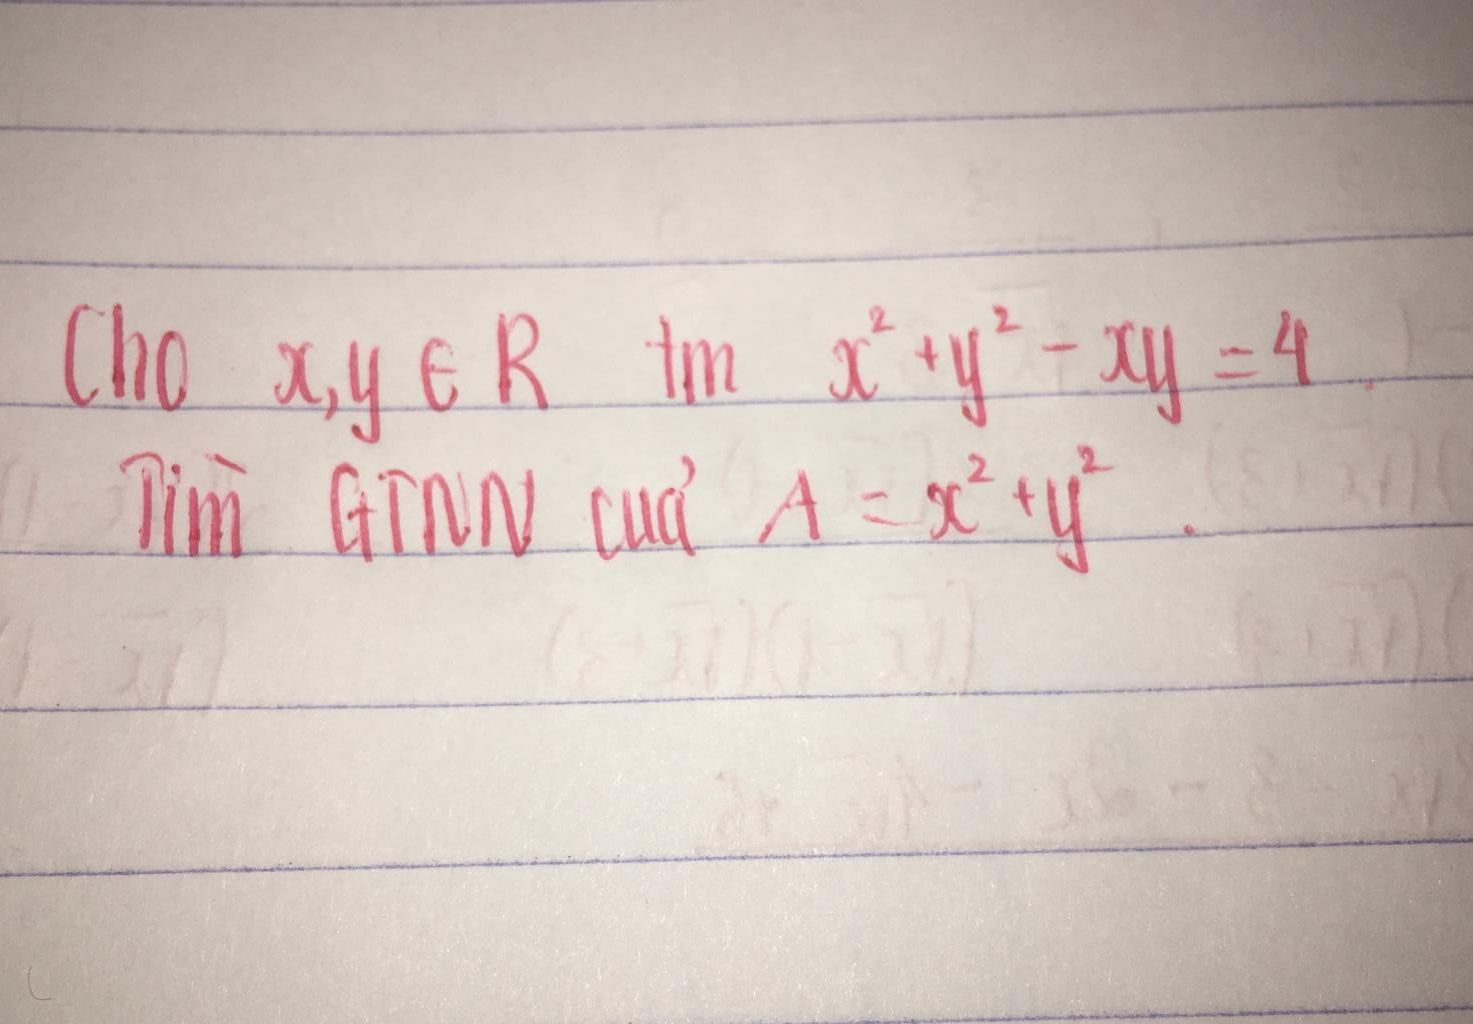 Cho x, y ∈ R tm x² + y² - xy = 4.
Tìm GTNN của A = x² + y².